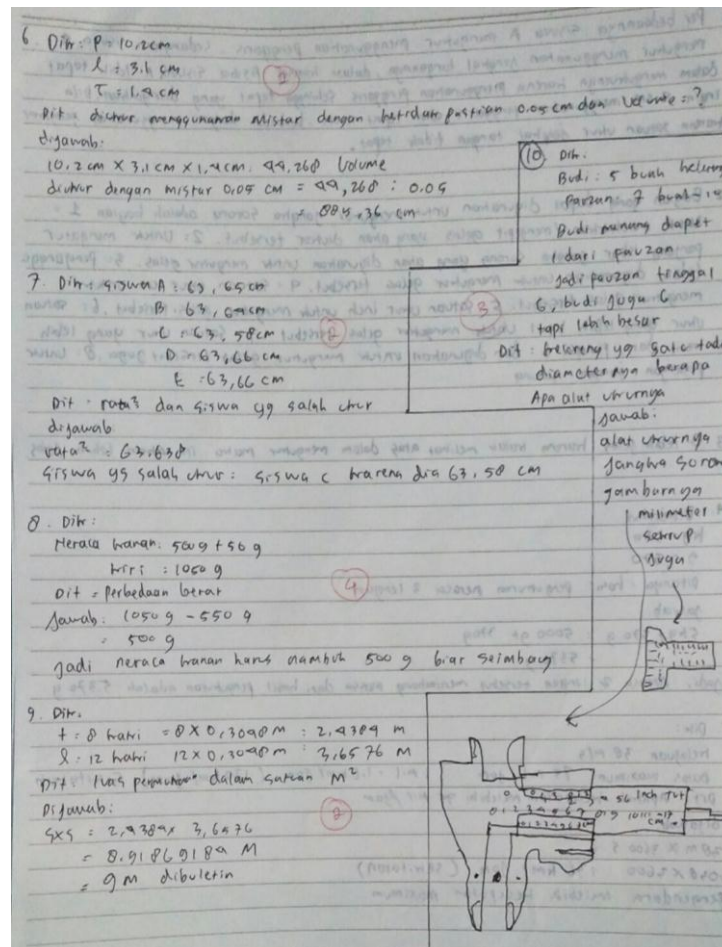 6. Dik: P = 10,2cm
l = 3.1 cm
T = 1,4 cm
2
Dit diukur menggunakan mistar dengan ketidak pastian 0.05 cm dan Volume = ?
dijawab:
10.2 cm x 3,1 cm x 1,4 cm. 44,268 Volume
diukur dengan mistar 0,05 cm = 44,268 : 0,05
= 885,36 cm
7. Dik = siswa A : 63, 65 cm
B : 63, 64 cm
C : 63, 58 cm
2
D = 63,66 cm
E : 63,66 cm
Dit = rata² dan siswa yg salah ukur
dijawab
rata² = 63.638
siswa yg salah ukur : siswa c karena dia 63. 58 cm
8. Dik :
Neraca kanan: 500 g + 50 g
kiri : 1050 g
Dit = Perbedaan berat
4
Jawab: 1050 g - 550 g
= 500 g
Jadi neraca kanan harus nambah 500 g biar seimbang
9. Dik.
t = 8 kaki = 8 x 0,3048 M : 2,4384 m
l : 12 kaki 12 x 0,3048 M : 3,6576 M
Dit : luas dalam satuan M²
Dijawab:
2
SxS = 2,4384 x 3,6576
= 8.91869184 M
= 9 M dibuletin
10. Dik.
Budi : 5 buah
Fauzan 7 buah
Budi menang diapet
1 dari fauzan
Jadi fauzan tinggal
3
6, budi juga 6
tapi lebih besar
Dit : kelereng yg satu tadi
diameternya berapa
Apa alat ukurnya
Jawab:
alat ukurnya :
Jangka Soron
gambarnya
milimeter
sekrup
Juga
Inch
cm